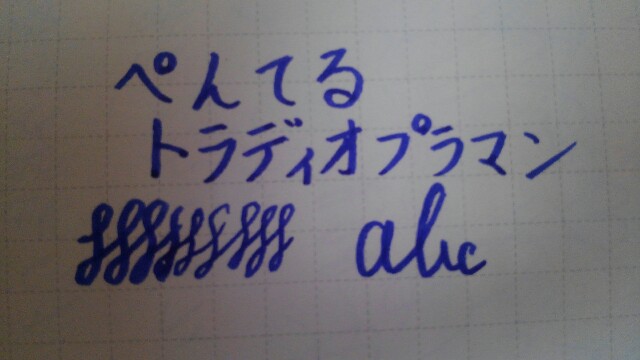 ぺんてる
トラディオプラマン
abc